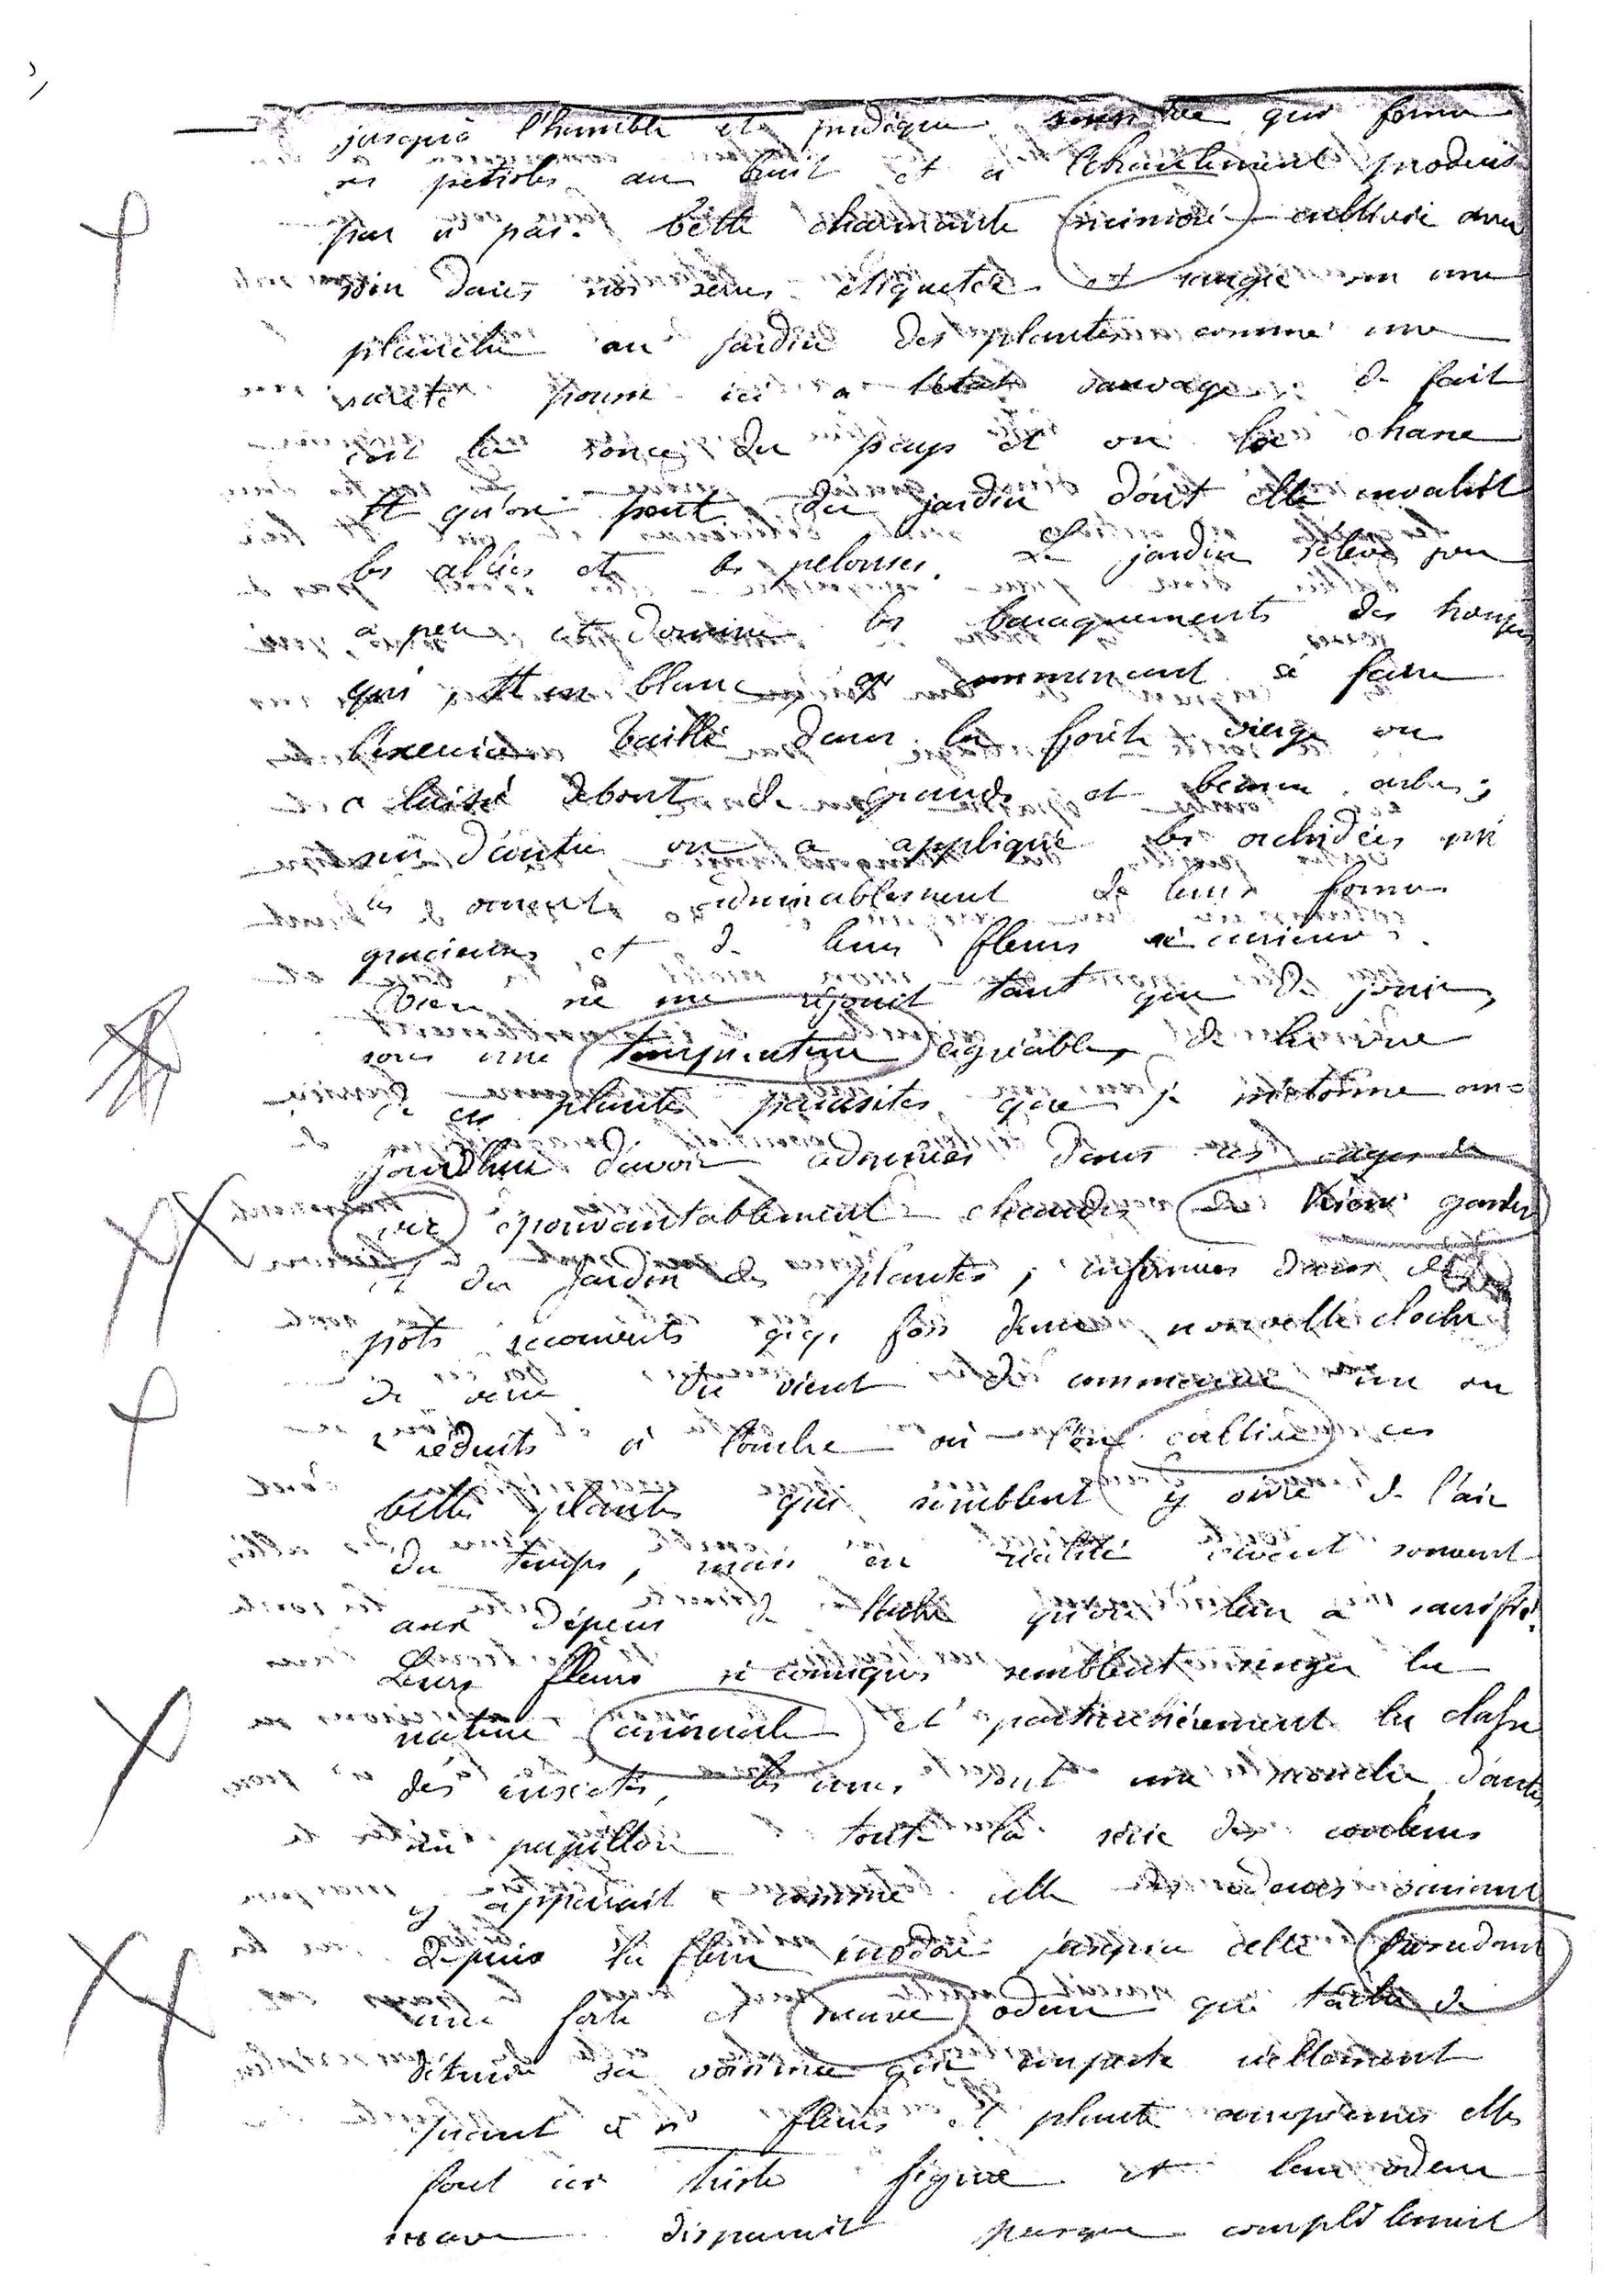 jusqu'à l'humble et pudique sensitive qui ferme
ses pétioles au bruit et à l'ébranlement produit
par un pas. Cette charmante mimosé cultivée avec
soin dans nos serres étiquetée et rangée sur une
planche au jardin des plantes comme une
rareté pousse ici a l'état sauvage; de fait
c'est la ronce du pays et on la chasse
tt qu'on peut du jardin dont elle envahit
les allées et les pelouses. Le jardin s'élève peu
à peu et domine les baraquements des troupes
qui tt en blanc commencent à faire
l'exercice. Taillé dans la forêt vierge on
a laissé debout de grands et beaux arbres;
sur d'autres on a appliqué les orchidées qui
les ornent admirablement de leurs formes
gracieuses et de leurs fleurs si curieuses.
Rien ne me réjouit tant que de jouir,
sous une température agréable, de la vue
de ces plantes parasites que je m'étonne au-
jourd'hui d'avoir admirées dans ces cages de
verre épouvantablement chaudes de Kew garden
et du Jardin des plantes, enfermées dans des
pots recouverts qq. fois d'une nouvelle cloche
de verre. On vient de commencer un ou
2 réduits à l'ombre où l'on cultive ces
belles plantes qui semblent y vivre de l'air
du temps, mais en réalité vivent souvent
aux dépens de l'arbre qu'on leur a sacrifié.
Leurs fleurs si comiques semblent singer la
nature animale et particulièrement la classe
des insectes, les unes sont une mouche, d'autres
un papillon toute la série des couleurs
y apparait, comme celle des odeurs
depuis la fleur inodore jusqu'à celle
une forte et odeur qui tâche de
détruire sa voisine qui empeste réellement
quant à nos fleurs et plantes européennes elles
font ici triste figure et leur odeur
suave disparait presque complètement